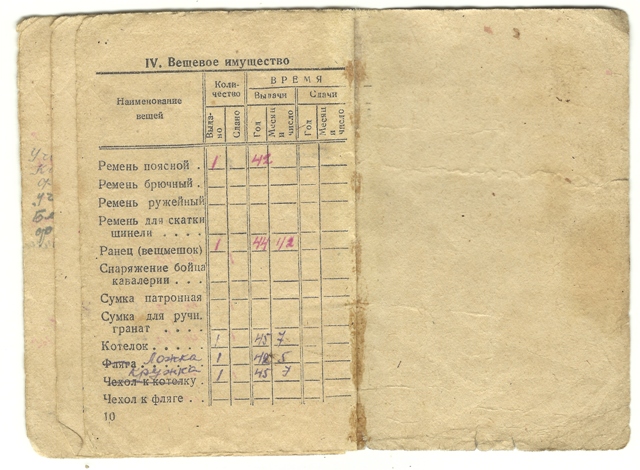 IV. Вещевое имущество
Наименование вещей
Коли-
чество
ВРЕМЯ
Выдачи
Сдачи
Выда-
но
Сдано
Год
Месяц
и
число
Год
Месяц
и
число
Ремень поясной . 1 42
Ремень брючный .
Ремень ружейный
Ремень для скатки
шинели . . . .
Ранец (вещмешок) 1 44 1/2
Снаряжение бойца
кавалерии . . .
Сумка патронная
Сумка для ручн.
гранат . . . .
Котелок . . . . 1 45 7
Фляга ложка 1 5
кружка
Чехол к котелку . 1 45 7
Чехол к фляге . .
10